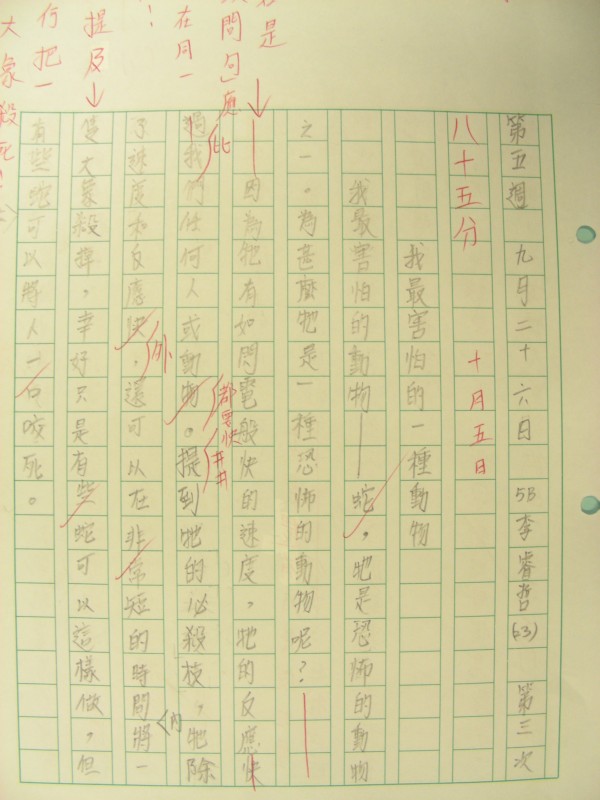 第五週 九月二十六日 5B李睿哲(23) 第三次
八十五分 十月五日
我最害怕的一種動物
我最害怕的動物——蛇，牠是恐怖的動物
之一。為甚麼牠是一種恐怖的動物呢？
因為牠有如閃電般快的速度，牠的反應快
過我們任何人或動物。提到牠的必殺技，牠除
比
都要快
了速度和反應快，還可以在非常短的時間將一
外
內
隻大象殺掉，幸好只是有些蛇可以這樣做，但
有些蛇可以將人一口咬死。
是
問句」應
在同一
！
提及
何把一
大象殺死！